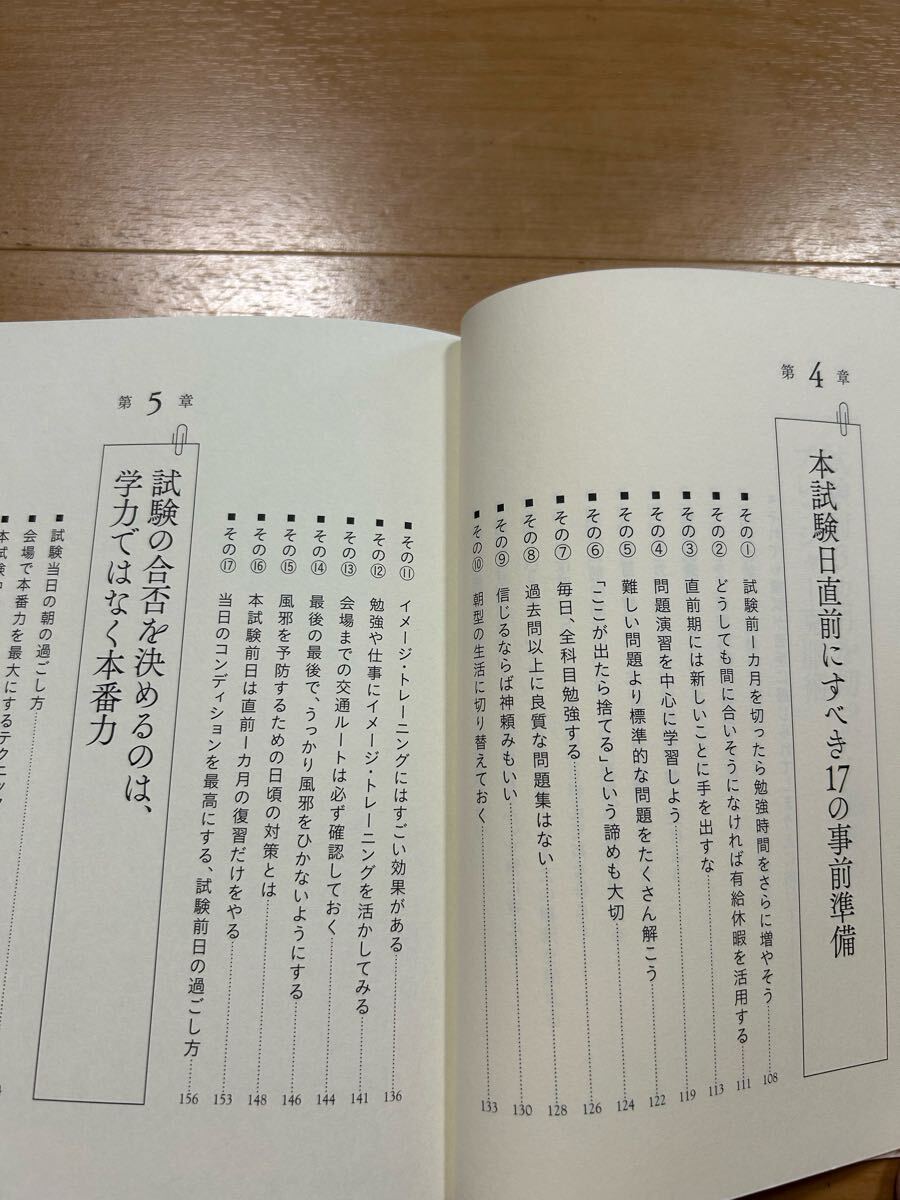 第4章
本試験日直前にすべき17の事前準備
■その① 試験前一カ月を切ったら勉強時間をさらに増やそう 108
■その② どうしても間に合いそうになければ有給休暇を活用する 111
■その③ 直前期には新しいことに手を出すな 113
■その④ 問題演習を中心に学習しよう 119
■その⑤ 難しい問題より標準的な問題をたくさん解こう 122
■その⑥ 「ここが出たら捨てる」という諦めも大切 124
■その⑦ 毎日、全科目勉強する 126
■その⑧ 過去問以上に良質な問題集はない 128
■その⑨ 信じるならば神頼みもいい 130
■その⑩ 朝型の生活に切り替えておく 133
■その⑪ イメージ・トレーニングにはすごい効果がある 136
■その⑫ 勉強や仕事にイメージ・トレーニングを活かしてみる 141
■その⑬ 会場までの交通ルートは必ず確認しておく 144
■その⑭ 最後の最後で、うっかり風邪をひかないようにする 146
■その⑮ 風邪を予防するための日頃の対策とは 148
■その⑯ 本試験前日は直前一カ月の復習だけをやる 153
■その⑰ 当日のコンディションを最高にする、試験前日の過ごし方 156
第5章
試験の合否を決めるのは、
学力ではなく本番力
■試験当日の朝の過ごし方
■会場で本番力を最大にするテクニック
■本試験中